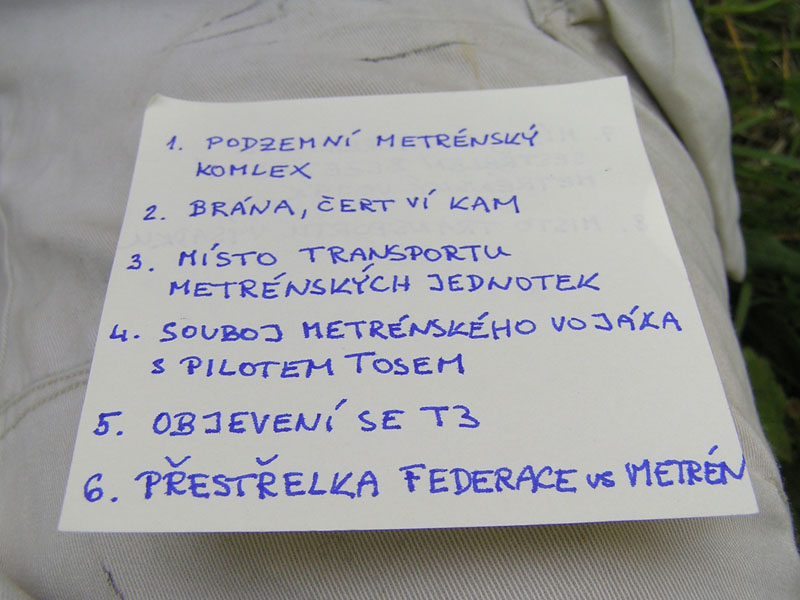 1. PODZEMNÍ METRÉNSKÝ
KOMLEX
2. BRÁNA, ČERT VÍ KAM
3. MÍSTO TRANSPORTU
METRÉNSKÝCH JEDNOTEK
4. SOUBOJ METRÉNSKÉHO VOJÁKA
S PILOTEM TOSEM
5. OBJEVENÍ SE T3
6. PŘESTŘELKA FEDERACE vs METRÉN